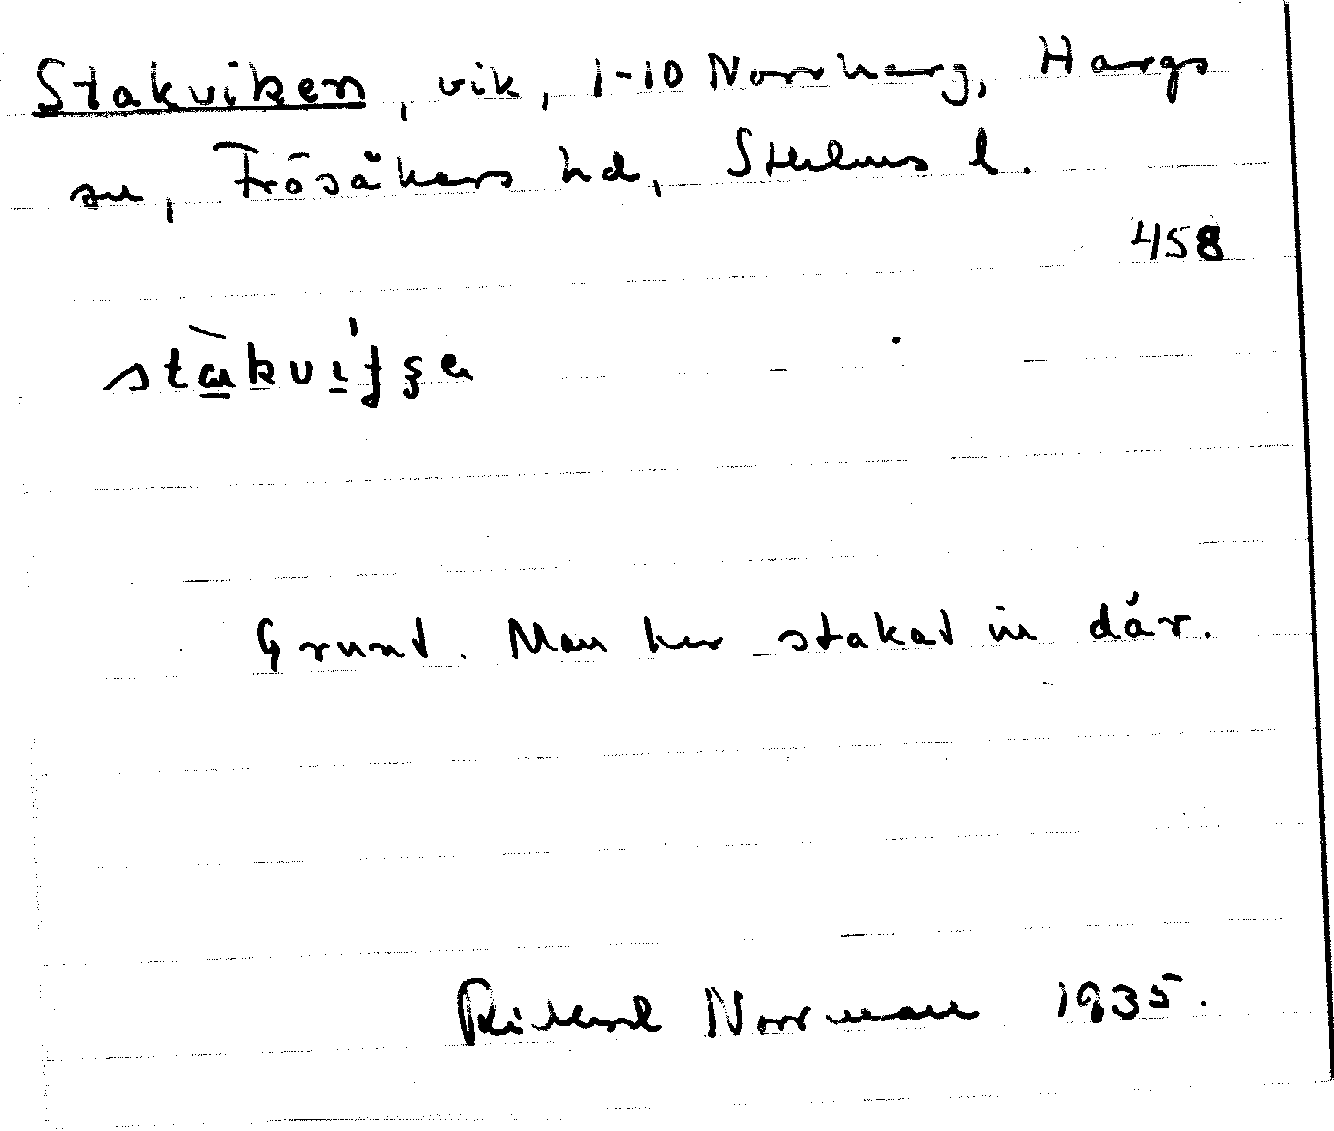 Stakviken, vik, 1-10 Norrharg, Hargs
sn, Frösåkers hd, Sthlms l.
458
Grunt. Man har stakat in där.
Rickard Norrman 1935.